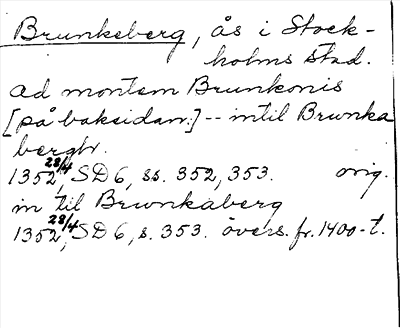 Brunkeberg, ås i Stock-
holms stad.
ad montem Brunkonis
[på baksidan:] -- intil Brunka
bergh.
1352 28/4, SD 6, ss. 352, 353. orig.
in til Brunkaberg
1352 28/4, SD 6, s. 353. övers. fr. 1400-t.